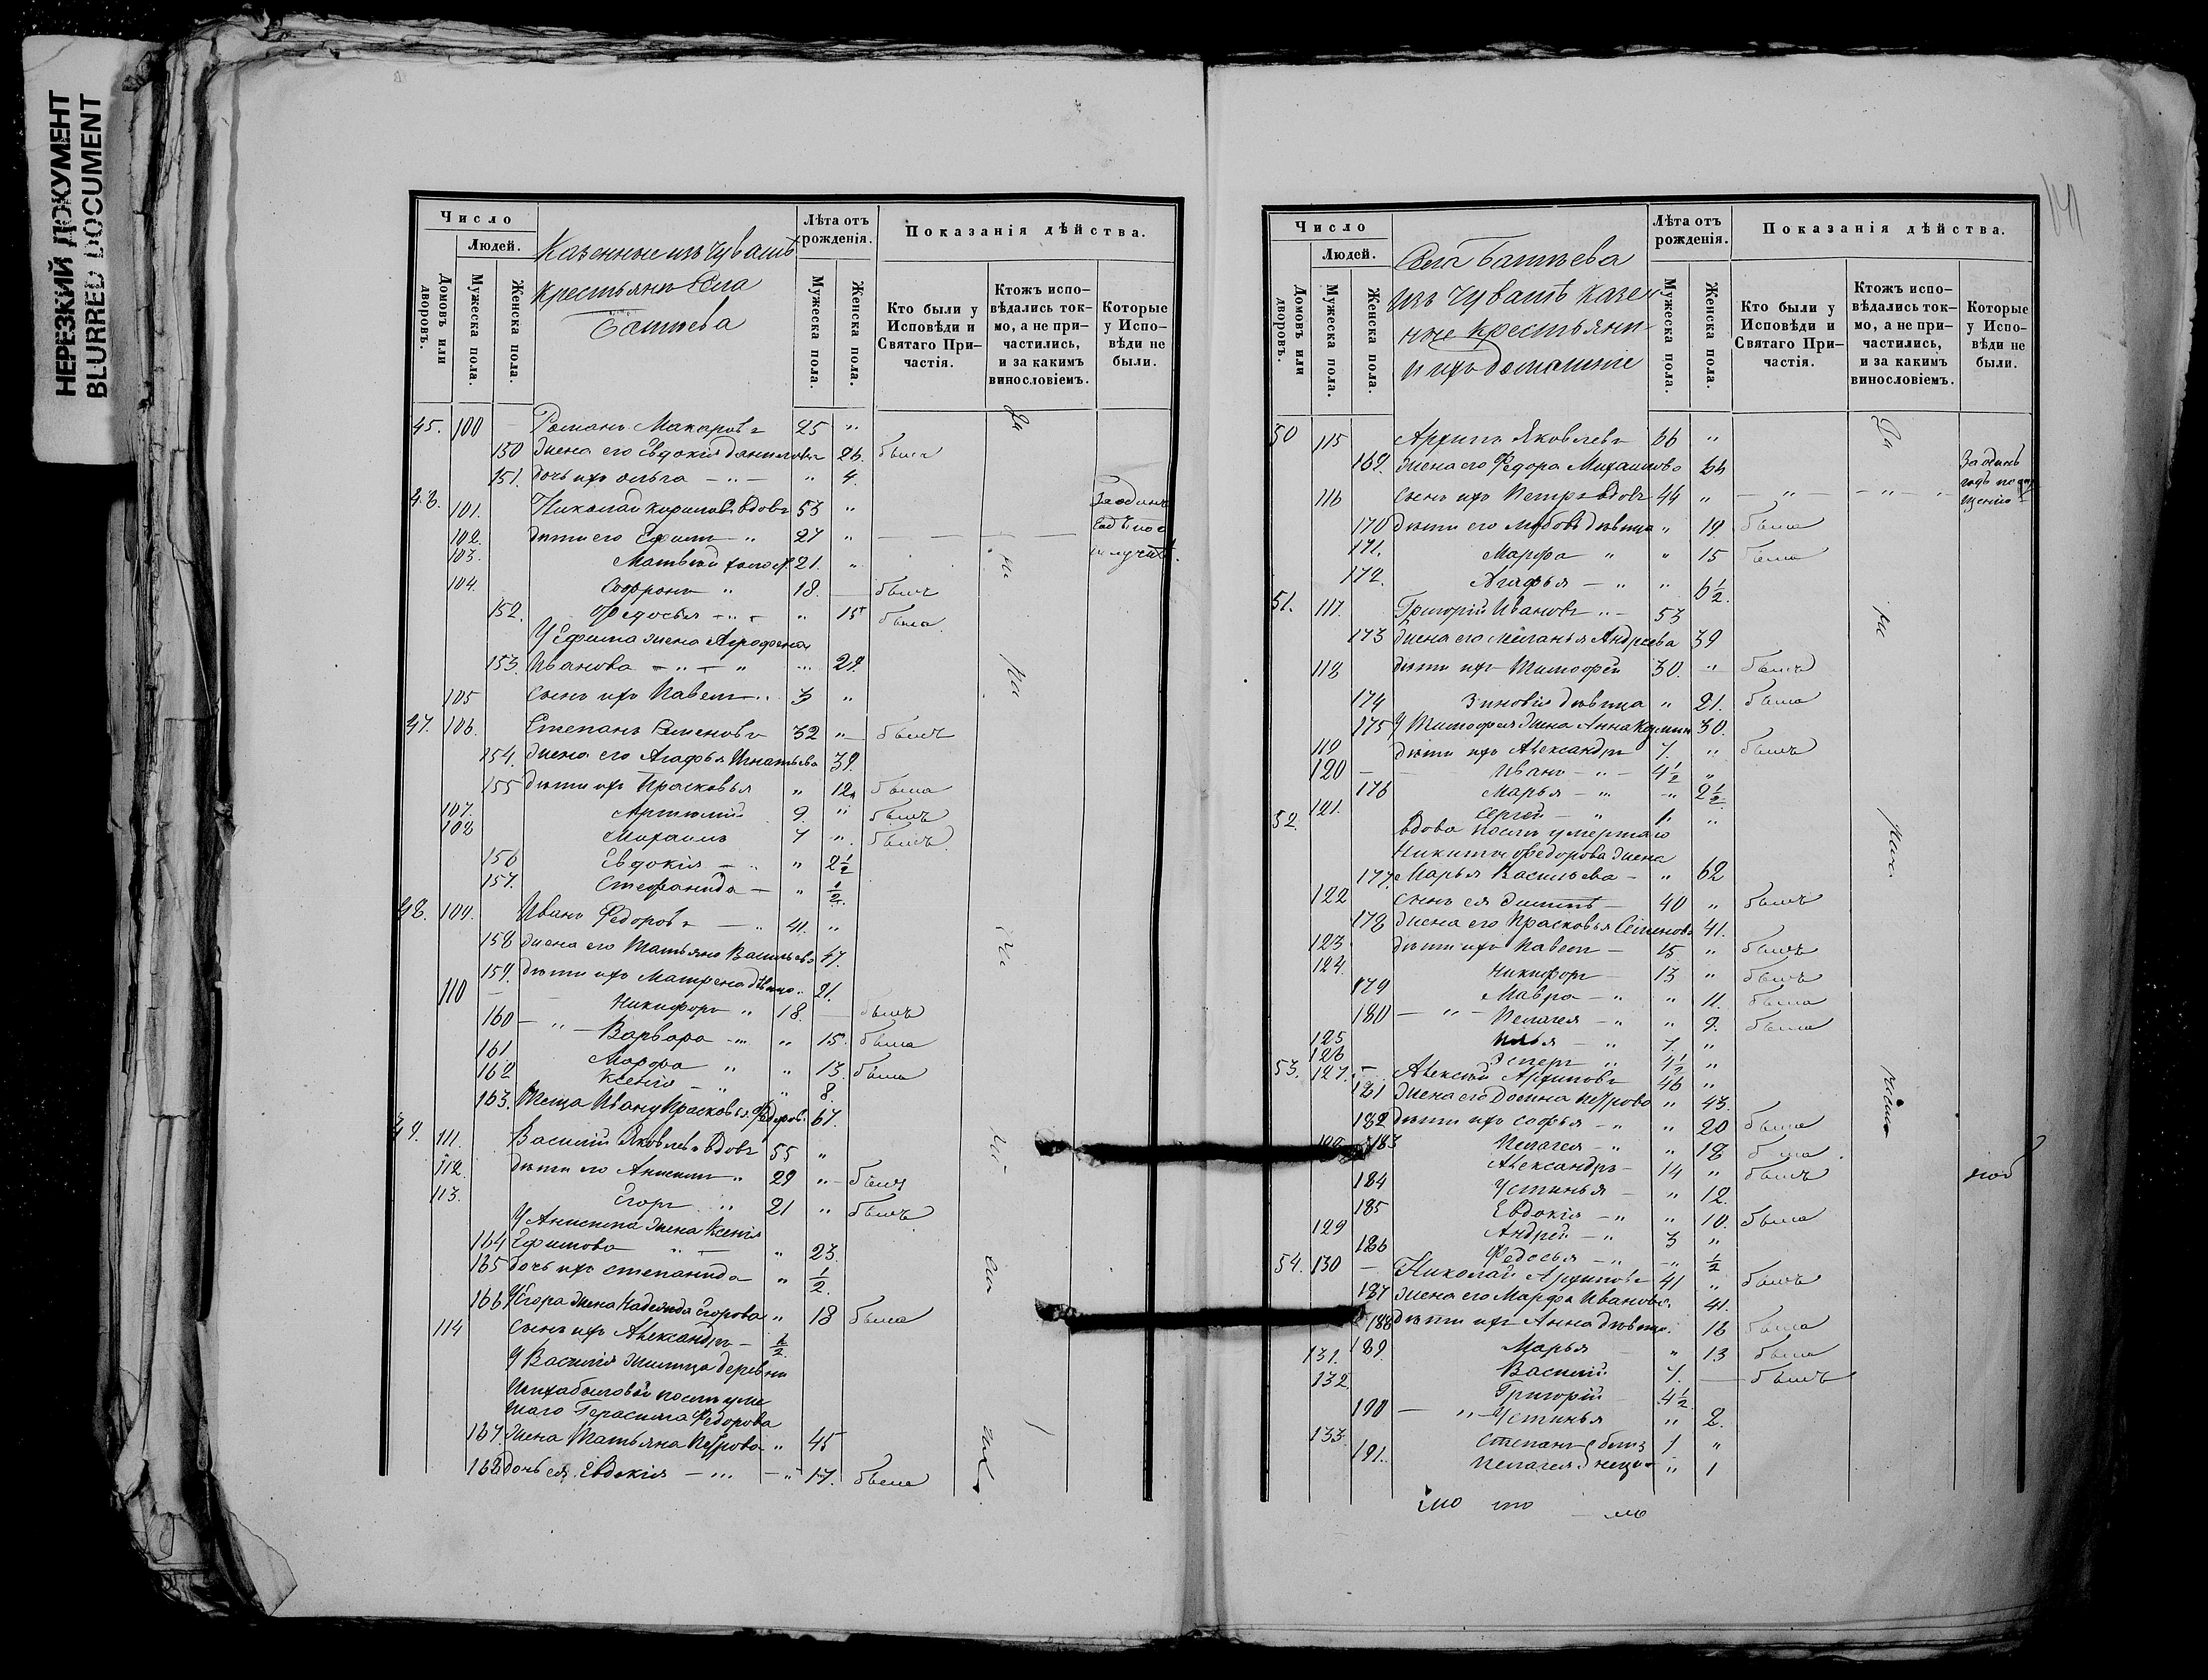 НЕРЕЗКИЙ ДОКУМЕНТ
BLURRED DOCUMENT
Число
Людей.
Домовъ или дворовъ.
Мужеска пола.
Женска пола.
Казенные изъ Чувашъ
крестьянъ Села
Батаева
Лѣта отъ рожденія.
Мужеска пола.
Женска пола.
Показанія дѣйства.
Кто были у Исповѣди и Святаго При-частія.
Ктожъ испо-вѣдались ток-мо, а не при-частились, и за какимъ винословіемъ.
Которые у Испо-вѣди не были.
45. 100 Романъ Макаровъ 25 "
150 жена его Евдокія Данилова 26. была
151. дочь ихъ Ольга - " - " 4.
46. 101. Николай Кириловъ вдовъ 53 "
102. дѣти его Ефимъ - " 27 "
103. Матвѣй холос. 21. "
104. Софронъ " 18. былъ
152. Федосья - " - " 15 была
У Ефима жена Агрофена
153. Иванова - " - " 29.
105 сынъ ихъ Павелъ 3 "
47. 106. Степанъ Семеновъ 32 " былъ
154. жена его Агафья Игнатьева 39.
155 дѣти ихъ Прасковья " 12 была
107. Артемій 9. " былъ
108 Михаилъ 7 " былъ
156 Евдокія - " " 2 1/2
157. Стефанида - " 1/2.
48. 109. Иванъ Федоровъ - " 41. "
158 жена его Татьяна Васильева 47.
159. дѣти ихъ Матрена дѣвица " 21.
110 Никифоръ " 18. былъ
160 - " - Варвара - " " 15. была
161. Марфа " " 13. была
162 Ксенія - " " 8.
163. Теща Ивану Прасковья Федоров. 67.
49. 111. Василій Яковлевъ вдовъ 55 "
112. дѣти его Анисимъ " 29 " былъ
113. Егоръ " 21 " былъ
У Анисима жена Ксенія
164 Ефимова " " 23.
165 дочь ихъ Степанида " 1/2.
166 У Егора жена Надежда Егорова " 18 была
114 сынъ ихъ Александръ - 1/2
У Василія жилица деревни
шаго Герасима Федорова
167. жена Татьяна Петрова " 45
168 дочь ея Евдокія - " - " 17. была
141
Число
Людей.
Домовъ или дворовъ.
Мужеска пола.
Женска пола.
Села Батаева
изъ Чувашъ казен
ные крестьяни
и ихъ домашніе
Лѣта отъ рожденія.
Мужеска пола.
Женска пола.
Показанія дѣйства.
Кто были у Исповѣди и Святаго При-частія.
Ктожъ испо-вѣдались ток-мо, а не при-частились, и за какимъ винословіемъ.
Которые у Испо-вѣди не были.
50 115 Архипъ Яковлевъ 66 "
169. жена его Федора Михаилова 66
116 сынъ ихъ Петръ вдовъ 44 " - " - " -
170 дѣти его Любовь дѣвица " 19 была
171. Марфа " " 15 была
172. Агафья - " " 6 1/2.
51. 117. Григорій Ивановъ " - 53
173 жена его Меланья Андреева 39
118 дѣти ихъ Тимофей 30. " былъ
174 Зиновія дѣвица " 21. была
175 У Тимофея жена Анна 30.
119 дѣти ихъ Александръ 7. " былъ
120 Иванъ - " - 4 1/2 "
176 Марья - " " 2 1/2
121. Сергей - " 1. "
52. вдова послѣ умершаго
Никиты Федорова жена
177. Марья Васильева - " 62
122 сынъ ея 40 " былъ
178 жена его Прасковья Семенова 41.
123 дѣти ихъ Павелъ - 15 " былъ
124. Никифоръ - 13 " былъ
179 Мавра - " " 11. была
180 - " - Пелагея - " " 9. была
125 Илья - " 7. "
126 " 4 1/2 "
53. 127. Алексѣй Архиповъ 46 "
181 жена его Домна Петрова " 43.
182 дѣти ихъ Софья - " " 20 была
183 Пелагея - " " 18 была
128 Александръ - 14 " былъ
184 Устинья - " 12.
185 Евдокія - " " 10. была
129 Андрей - " 3 "
186 Федосья - " " 1/2
54. 130 Николай Архиповъ 41 " былъ
187 жена его Марфа Иванова 41.
188 дѣти ихъ Анна дѣвица 16 была
189. Марья " 13 была
131. Василій 7. былъ
132 Григорій 4 1/2.
190 - " - Устинья " 2.
133. Степанъ 1 "
191. Пелагея " 1